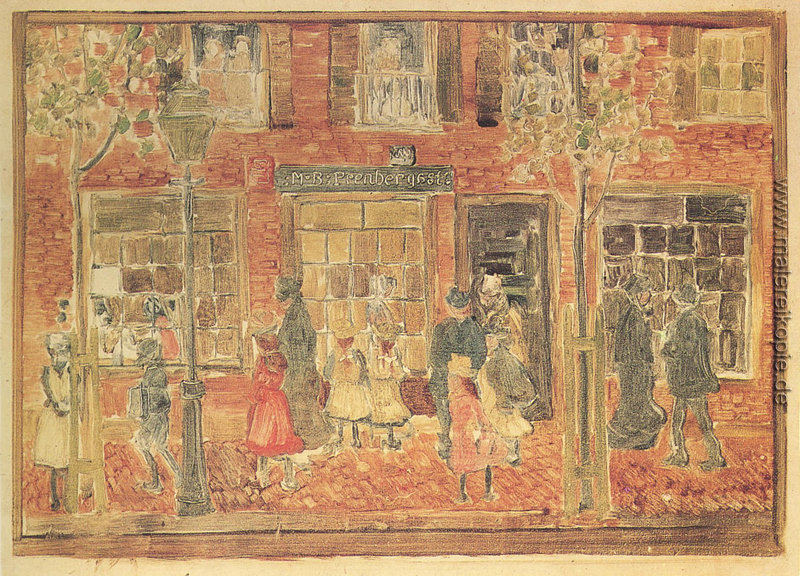 M·B·Prenbergast·
www.malereikopie.de